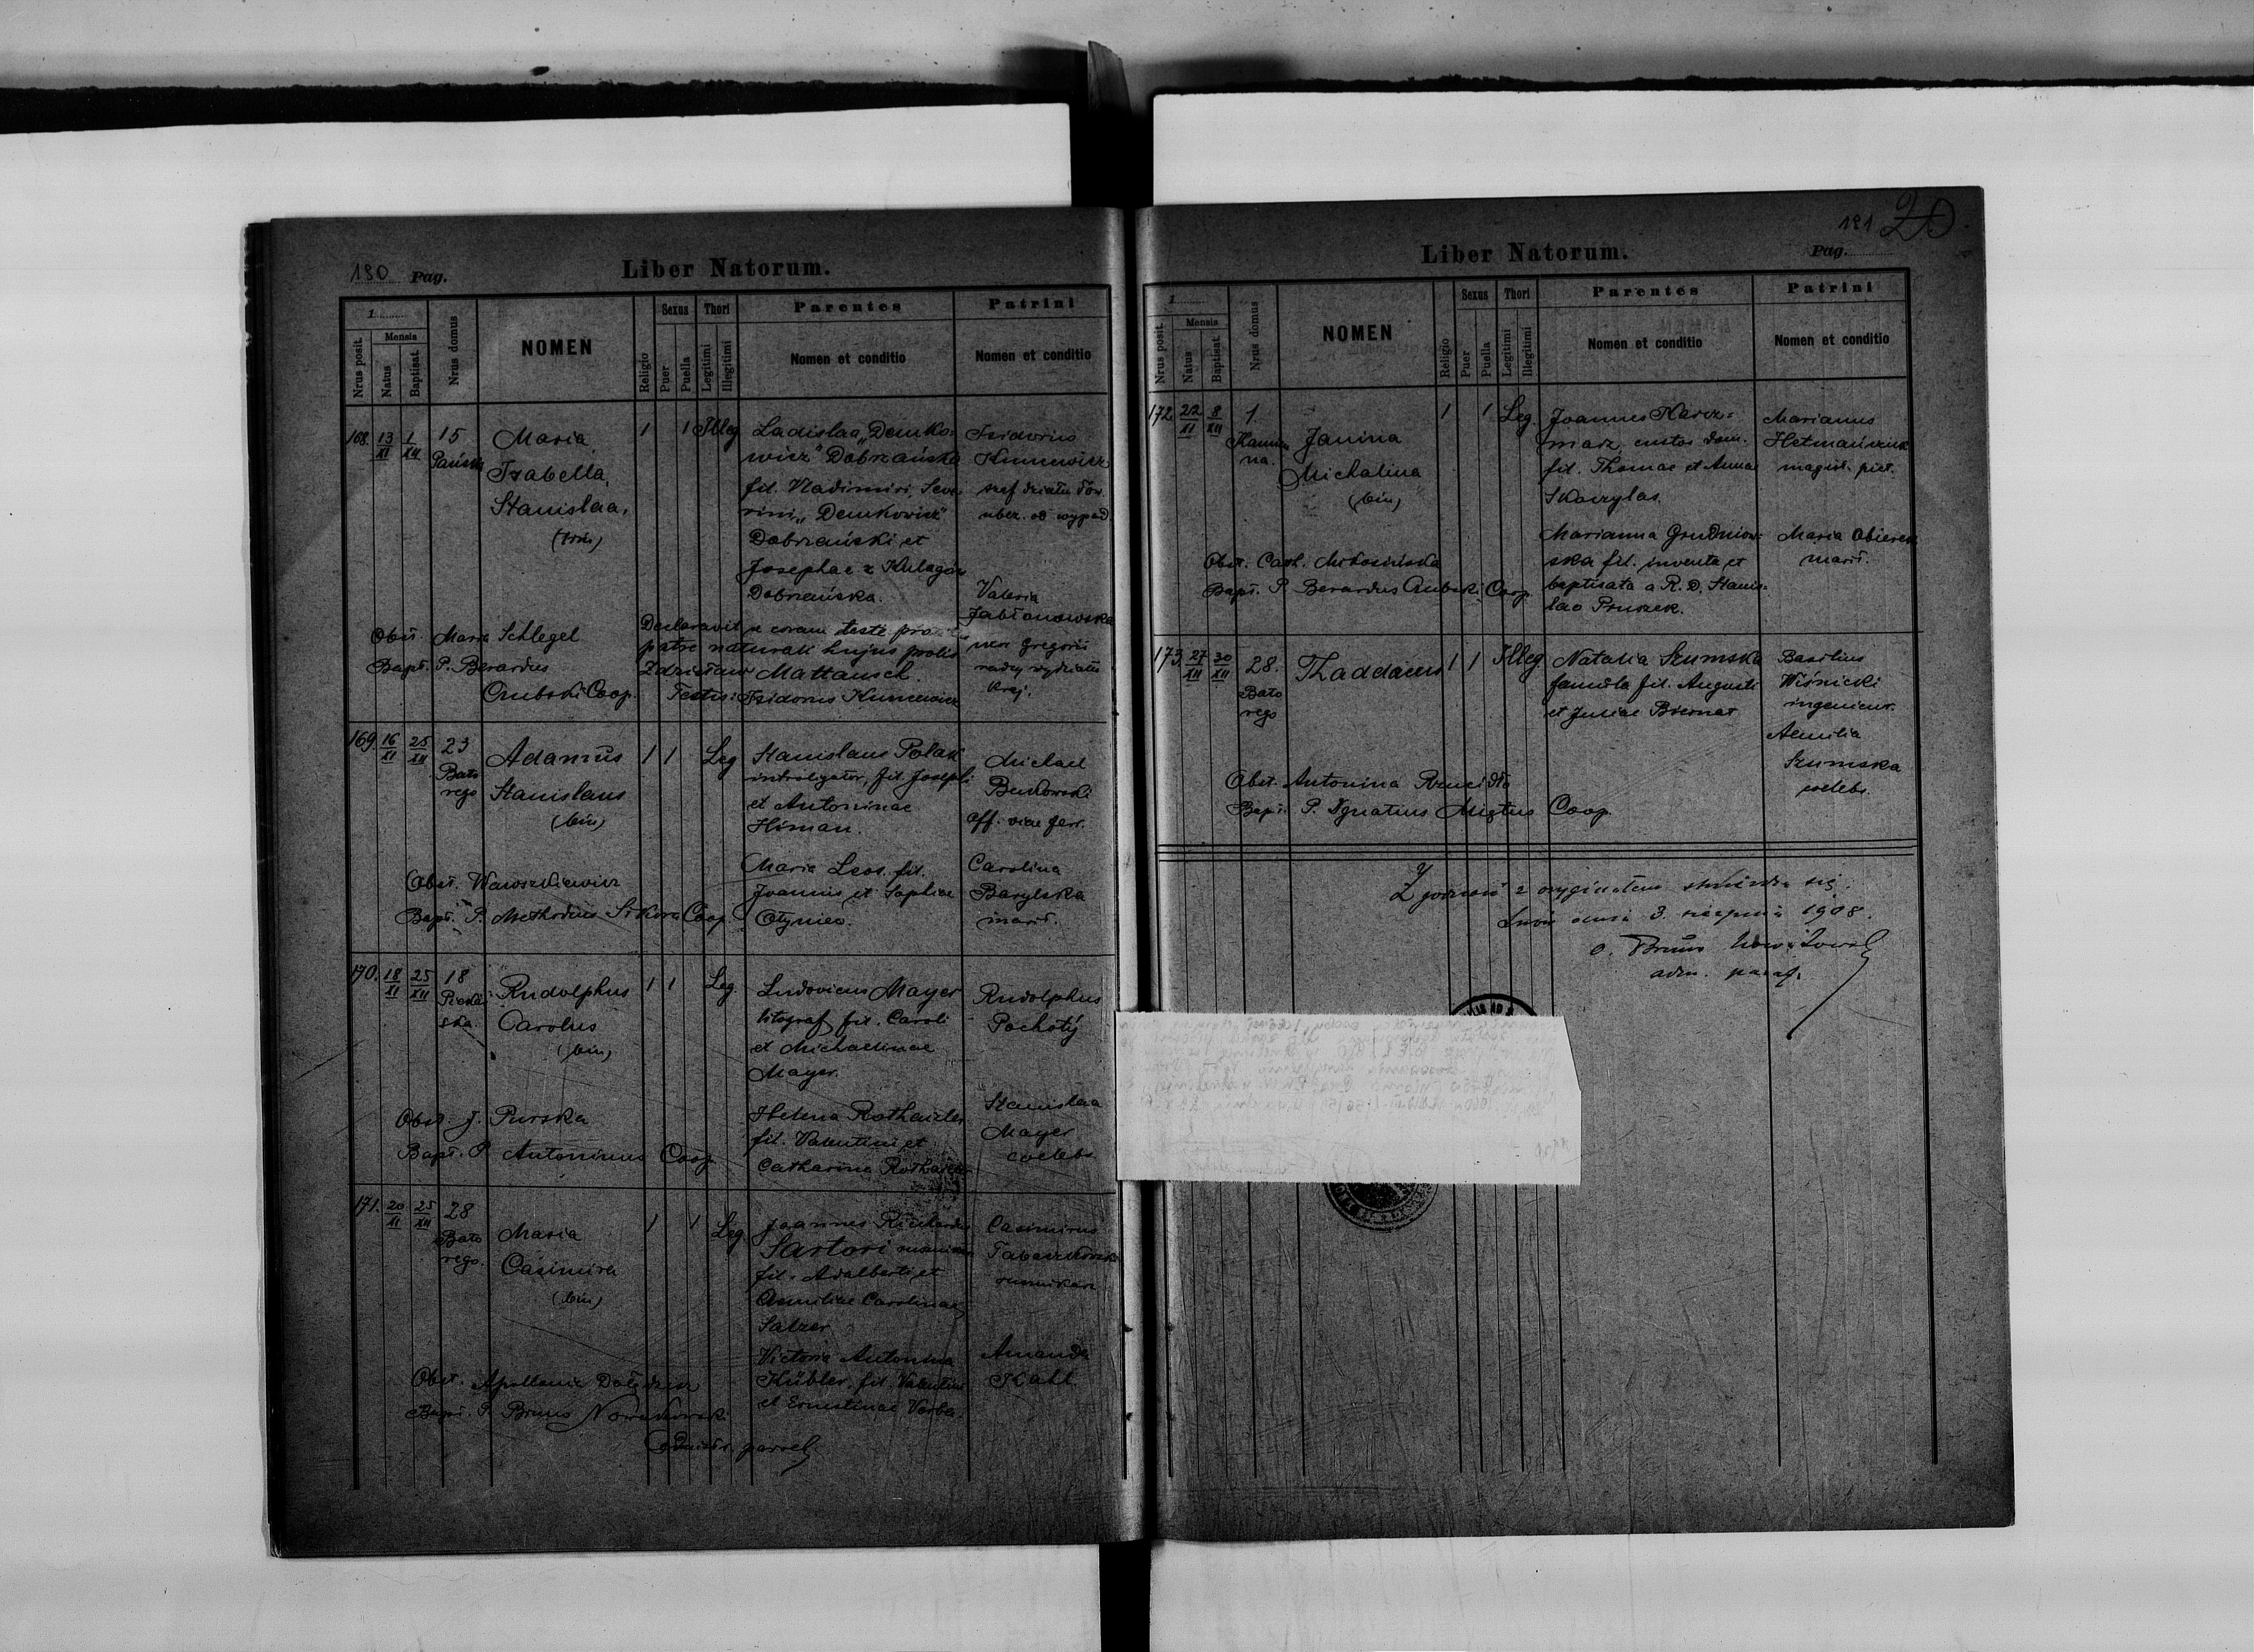 180 Pag.
Liber Natorum.
1
Nrus posit.
Mensis
Natus
Baptisat.
Nrus domus
NOMEN
Religio
Sexus
Puer
Puella
Thori
Legitimi
Illegitimi
Parentes
Nomen et conditio
Patrini
Nomen et conditio
168. 13/XI 1/XII 15
Pańska
Maria
Isabella,
Stanislaa,
(trin)
1 1 Illeg
Ladislaa „Demko-
wicz" Dobrzańska
fil. Vladimiri Seve-
rini „Demkowicz"
Dobrzański et
Josephae z Kulagów
Dobrzańska.
Isidorus
Kuncewicz
szef działu Tow.
ubez. od wypad.
Valeria
Jabłonowska
uxor Gregorii
radcy wydziału
kraj.
Obst. Maria Schlegel
Bapt. P. Berardus
Czubski Coop.
Declaravit se coram teste pro
patre naturali hujus prolis
Zdzisław Mattausch.
Testis: Isidorus Kuncewicz
169. 16/XI 25/XII 23
Bato
rego
Adamus
Stanislaus
(bin)
1 1 Leg
Stanislaus Polak
introligator, fil. Josephi
et Antoninae
Himan.
Maria Leos. fil.
Joannis et Sophiae
Otyniec.
Michael
Benkowski
off. viae ferr.
Carolina
Barylska
marit.
Obst. Waroszkiewicz
Bapt. P. Methodius Sikora Coop.
170. 18/XI 25/XII 18
ska.
Rudolphus
Carolus
(bin)
1 1 Leg.
Ludovicus Mayer
litograf fil. Caroli
et Michaelinae
Mayer.
Helena Rothaider
fil. Valentini et
Catharina Rothaider
Rudolphus
Pochotý
Stanislaa
Mayer
coelebs
Obst. J. Purska
Bapt. P. Antoninus Coop
171. 20/XI 25/XII 28
Bato
rego.
Maria
Casimira
(bin)
1 1 Leg.
Joannes Richardus
Sartori
fil. Adalberti et
Aemiliae Carolinae
Salzer
Victoria Antonina
Kübler, fil. Valentini
et Ernestinae Verba.
Casimirus
rusznikarz
Amanda
Kahl
Obst. Apollonia
Bapt. P. Bruno Nowakowski
Administr. paroch.
181 20
Pag.
Liber Natorum.
1
Nrus posit.
Mensis
Natus
Baptisat.
Nrus domus
NOMEN
Religio
Sexus
Puer
Puella
Thori
Legitimi
Illegitimi
Parentes
Nomen et conditio
Patrini
Nomen et conditio
172. 22/XI 8/XII 1.
na.
Janina
Michalina
(bin)
1 1 Leg.
Joannes Karcz-
marz, custos dom.
fil. Thomae et Anna
Skorzylas.
Marianna Grudniow-
ska fil. inventa et
baptisata a R. D. Stanis-
lao Pruszek.
Marianus
Hetmańczuk
magist. pict.
Maria Obierek
marit.
Obst. Cath. Mikosińska
Bapt. P. Berardus Czubski Coop.
173. 27/XII 30/XII 28.
Bato
rego
Thaddaeus
1 1 Illeg
Natalia Szumska
famula fil. Augusti
et Juliae Biernat
Basilius
Wiśnicki
ingenieur.
Aemilia
Szumska
coelebs.
Obst. Antonina
Bapt. P. Ignatius Migtus Coop.
Zgodność z oryginałem stwierdza się.
Lwów dnia 3. sierpnia 1908.
o. Bruno Nowakowski
adm. paraf.